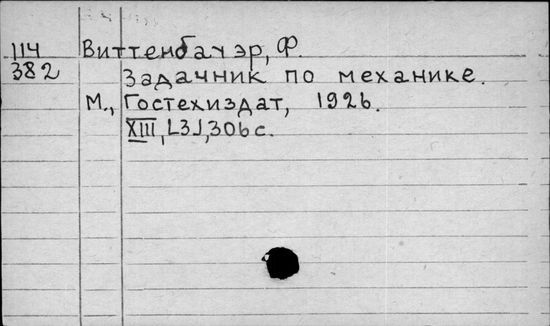 114 Виттенбауэр, Ф.
382 Задачник по механике.
М., Гостехиздат, 1926.
XIII, [3], 306 с.